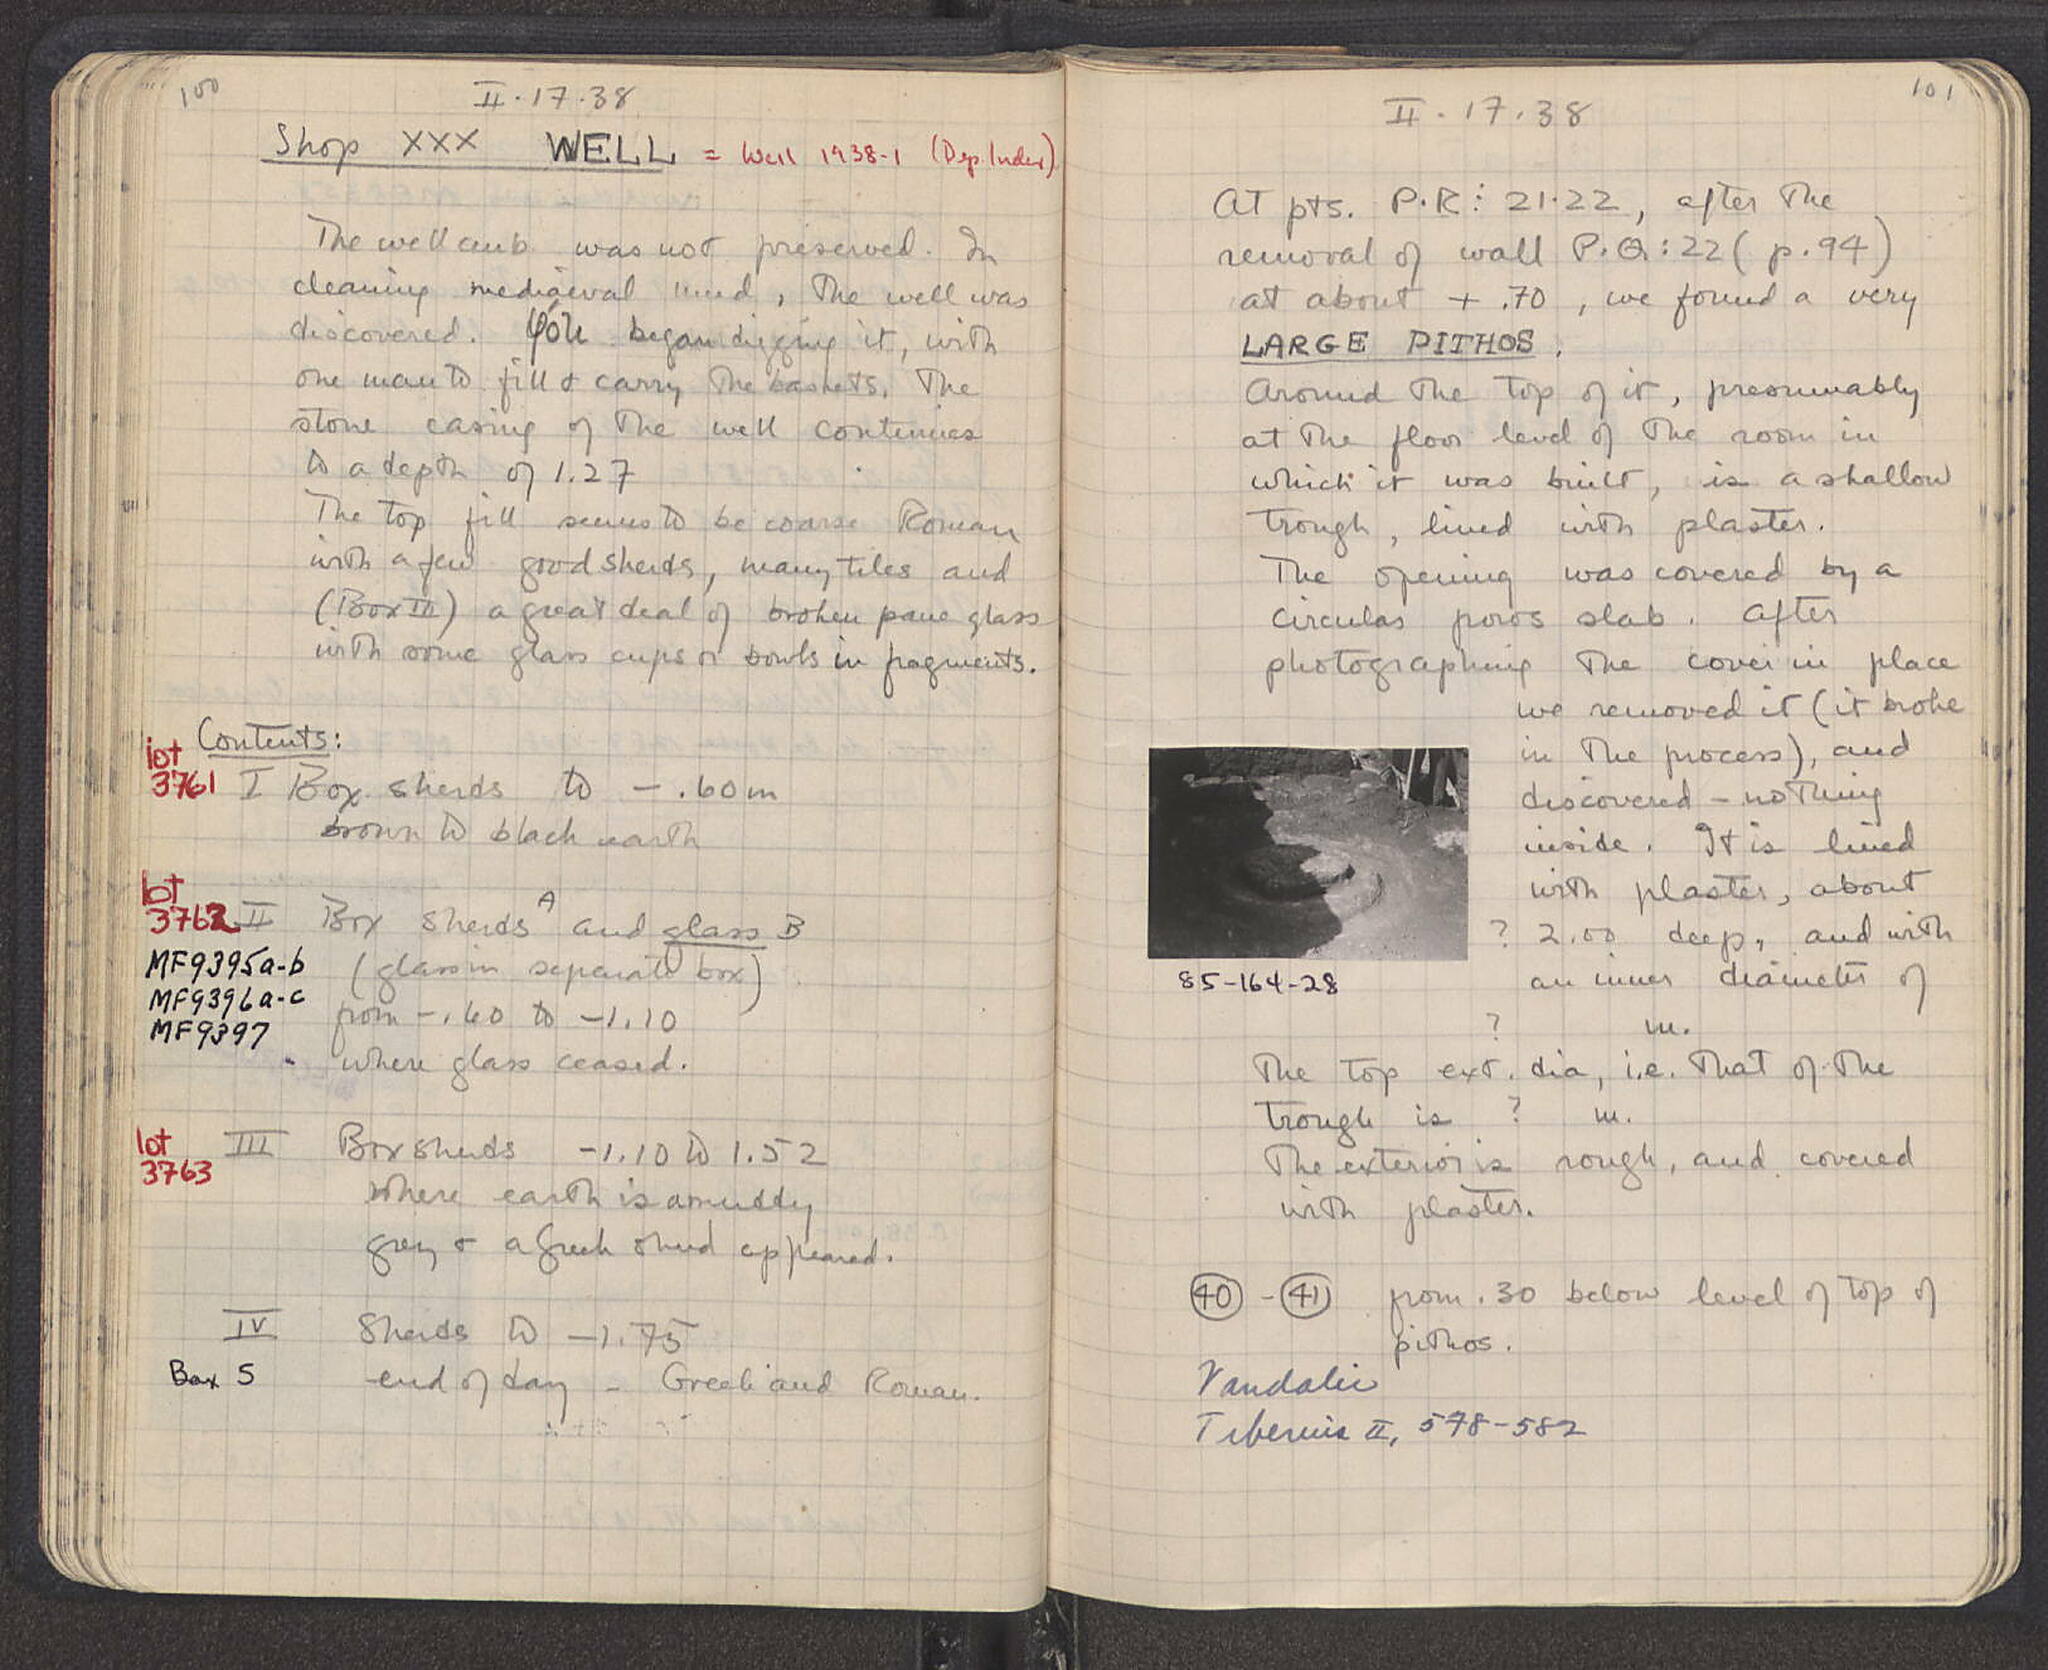 100
II · 17 · 38
Shop XXX WELL = Well 1938-1 (Dep. Index)
The well curb was not preserved. In
cleaning mediaeval mud, the well was
discovered. began digging it, with
one man to fill & carry the baskets. The
stone casing of the well continues
to a depth of 1.27
The top fill seems to be coarse Roman
with a few good sherds, many tiles and
(Box III) a great deal of broken pane glass
with some glass cups or bowls in fragments.
Contents:
lot
3761 I Box sherds to -.60m
brown to black earth
lot
3762 II Box sherds A and glass B
MF9395a-b (glass in separate box)
MF9396a-c
from -.60 to -1.10
MF9397
where glass ceased.
lot
3763 III Box sherds -1.10 to 1.52
where earth is a muddy
grey & a Greek sherd appeared.
IV Sherds to -1.75
Box 5 end of day - Greek and Roman.
101
II · 17 · 38
At pts. P·R: 21·22, after the
removal of wall P·Q:22 (p. 94)
at about + .70, we found a very
LARGE PITHOS.
Around the top of it, presumably
at the floor level of the room in
which it was built, is a shallow
trough, lined with plaster.
The opening was covered by a
circular poros slab. After
photographing the cover in place
we removed it (it broke
in the process), and
discovered - nothing
inside. It is lined
with plaster, about
? 2.00 deep, and with
85-164-28
an inner diameter of
? m.
The top ext. dia, i.e. that of the
trough is ? m.
The exterior is rough, and covered
with plaster.
40 - 41 from .30 below level of top of
pithos.
Vandalic
Tiberius II, 578-582